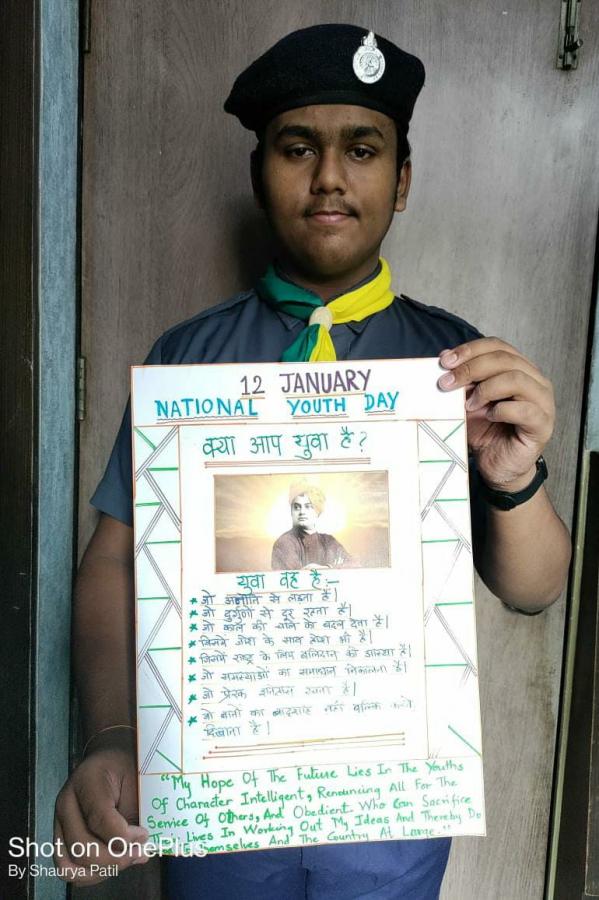 12 JANUARY
NATIONAL YOUTH DAY
क्या आप युवा है?
युवा वह है:-
★ जो अनीति से लडता है।
★ जो दुर्गुणों से दूर रहता है।
★ जो काल की चाल को बदल देता है।
★ जिसमें जोश के साथ होश भी है।
★ जिसमें राष्ट्र के लिए बलिदान की आस्था है।
★ जो समस्याओं का समाधान निकालता है।
★ जो प्रेरक इतिहास रचता है।
★ जो बातों का बादशाह नहीं बल्कि करके
दिखाता है।
"My Hope Of The Future Lies In The Youths
Of Character Intelligent, Renouncing All For The
Service Of Others, And Obedient Who Can Sacrifice
Their Lives In Working Out My Ideas And Thereby Do
Themselves And The Country At Large."
Shot on OnePlus
By Shaurya Patil